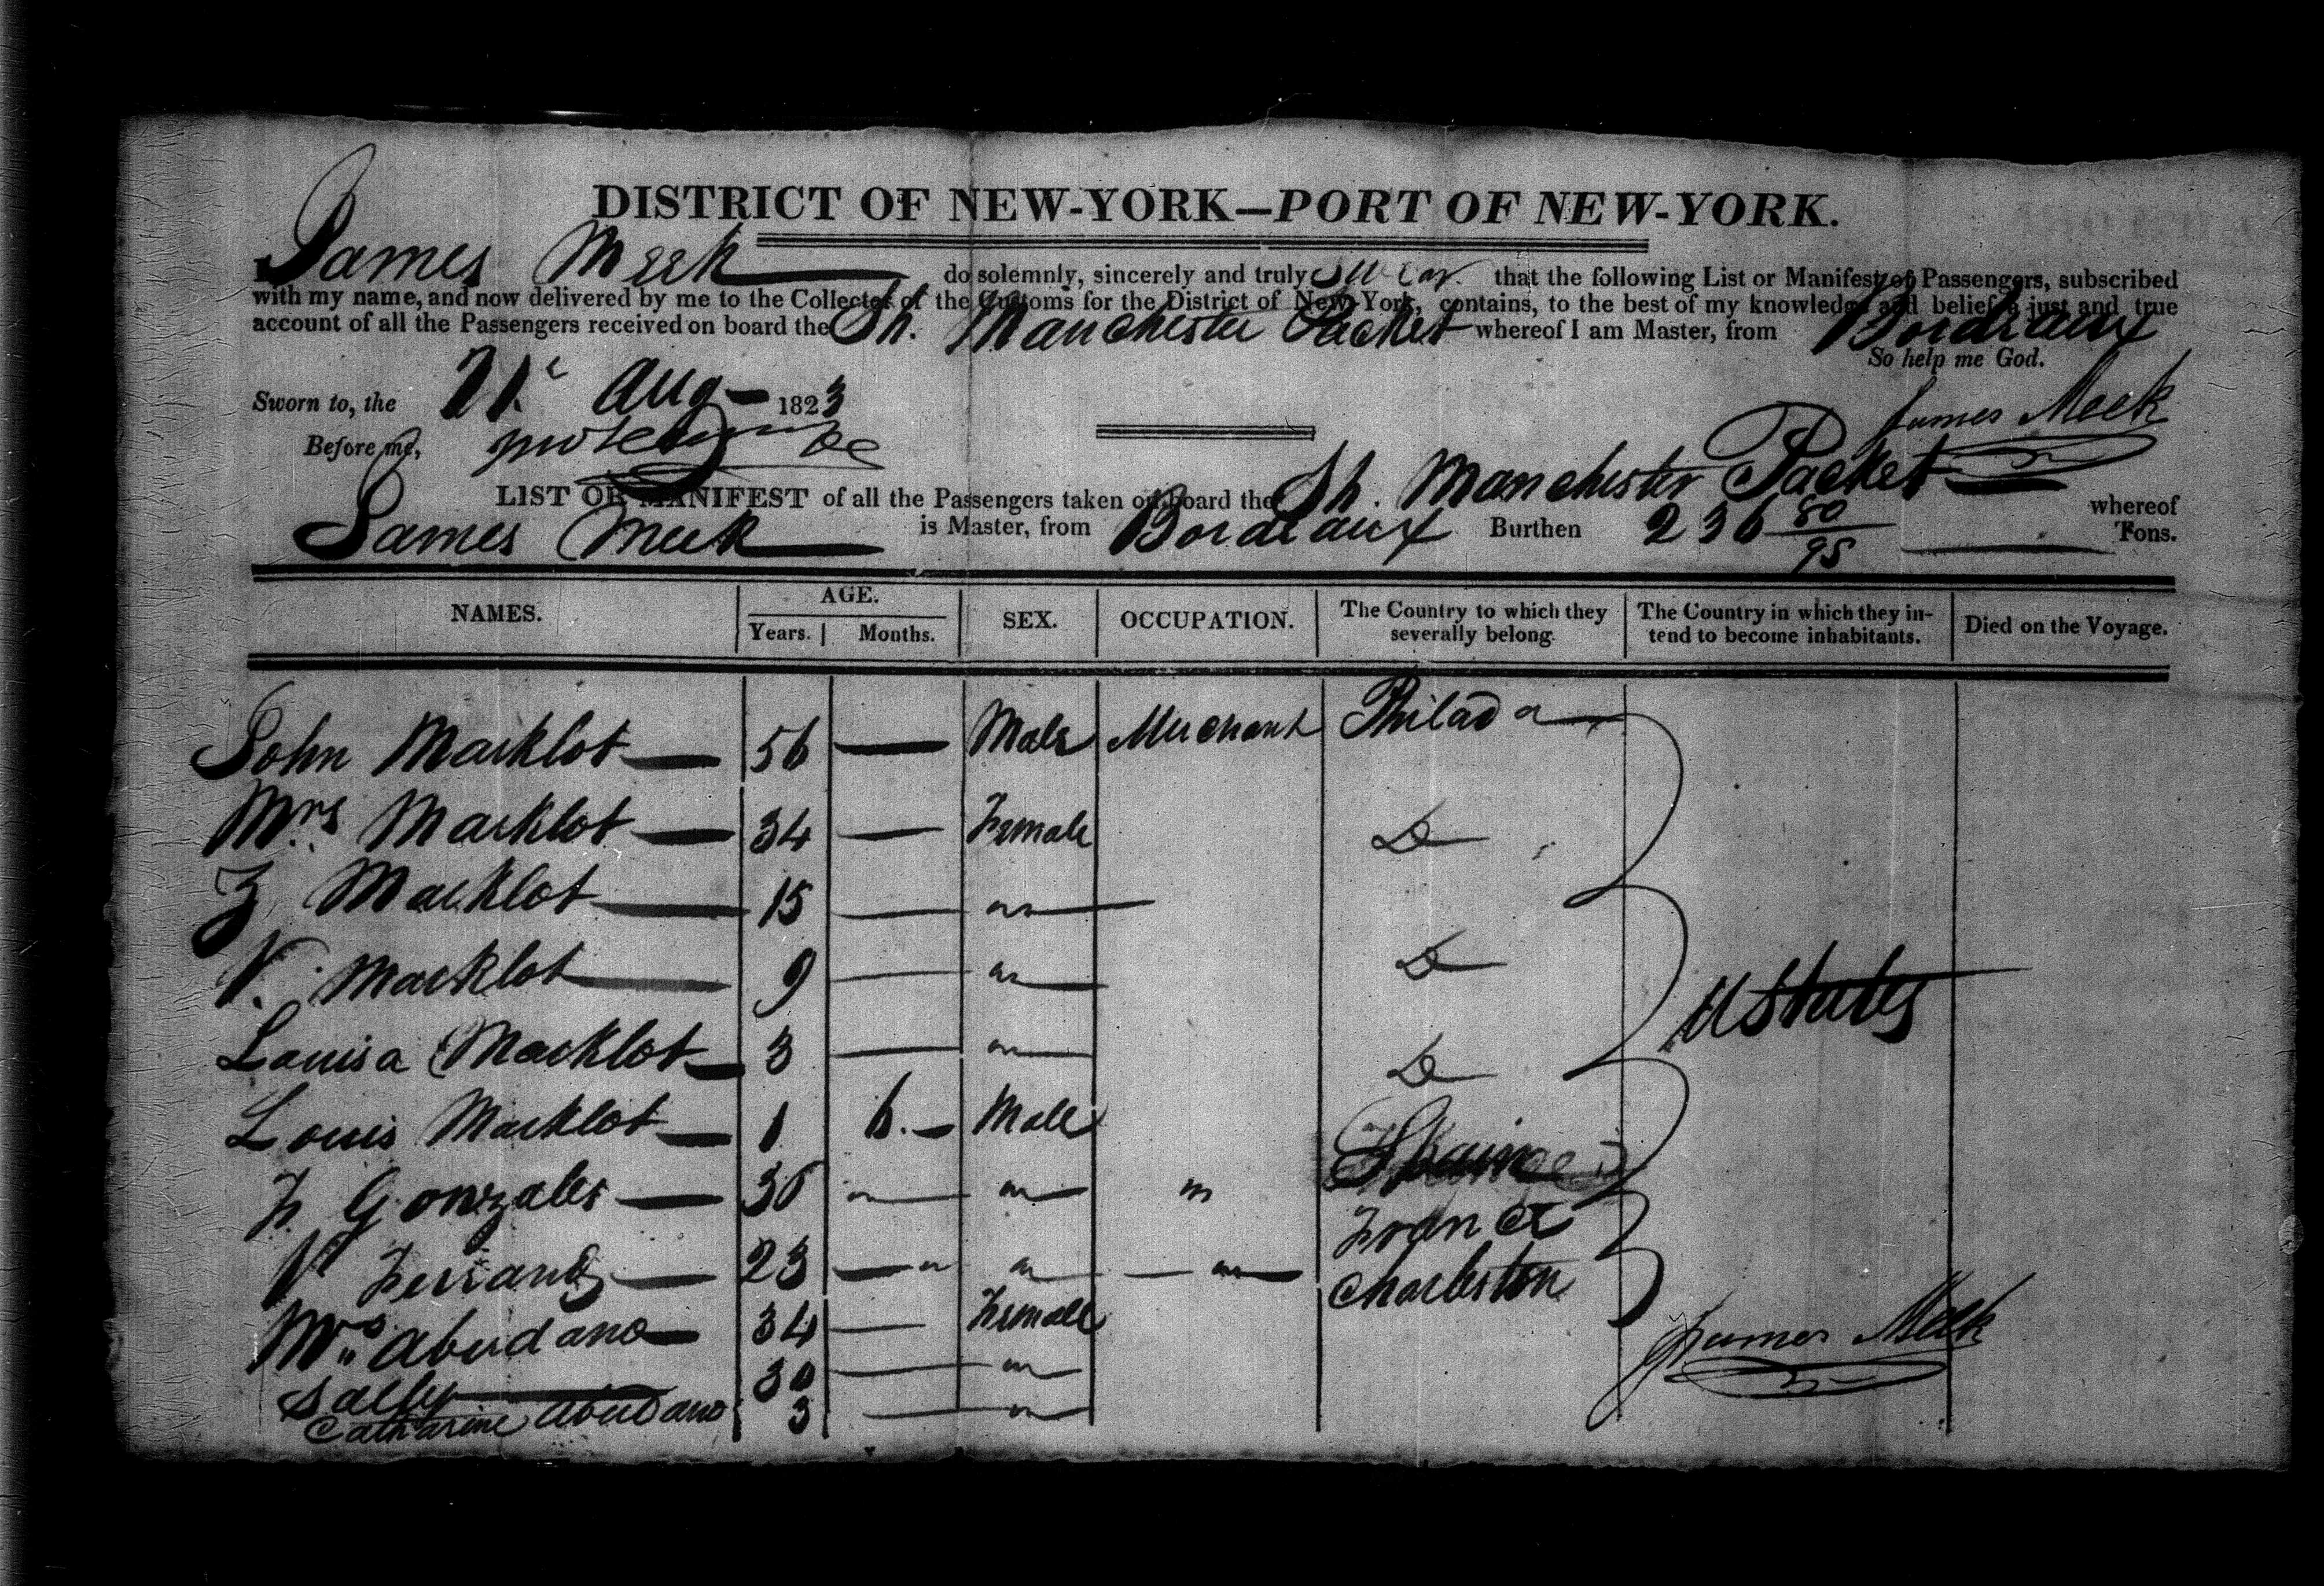 DISTRICT OF NEW-YORK—PORT OF NEW-YORK.
I James Meek do solemnly, sincerely and truly swear that the following List or Manifest of Passengers, subscribed
with my name, and now delivered by me to the Collector of the Customs for the District of New-York, contains, to the best of my knowledge and belief a just and true
account of all the Passengers received on board the Sh. Manchester Packet whereof I am Master, from Bordeaux
So help me God.
Sworn to, the 21 Aug 1823
James Meek
Before me,
LIST OR MANIFEST of all the Passengers taken on board the Sh. Manchester Packet whereof
James Meek is Master, from Bordeaux Burthen 236 80/95 Tons.
NAMES. AGE. Years. Months. SEX. OCCUPATION. The Country to which they severally belong. The Country in which they intend to become inhabitants. Died on the Voyage.
John Macklot 56 — Male Merchant Philada
Mrs Macklot 34 — Female Do
F Macklot 15 — "
V. Macklot 9 — " Do
Louisa Macklot 3 — " Do
U States
Louis Macklot 1 6 Male
F. Gonzales 36 " " " Spain
France
V Ferrand 23 — " " — "
Charleston
Mrs Abudano 34 — Female
Sally 30 — "
Catharine Abudano 3 — "
James Meek